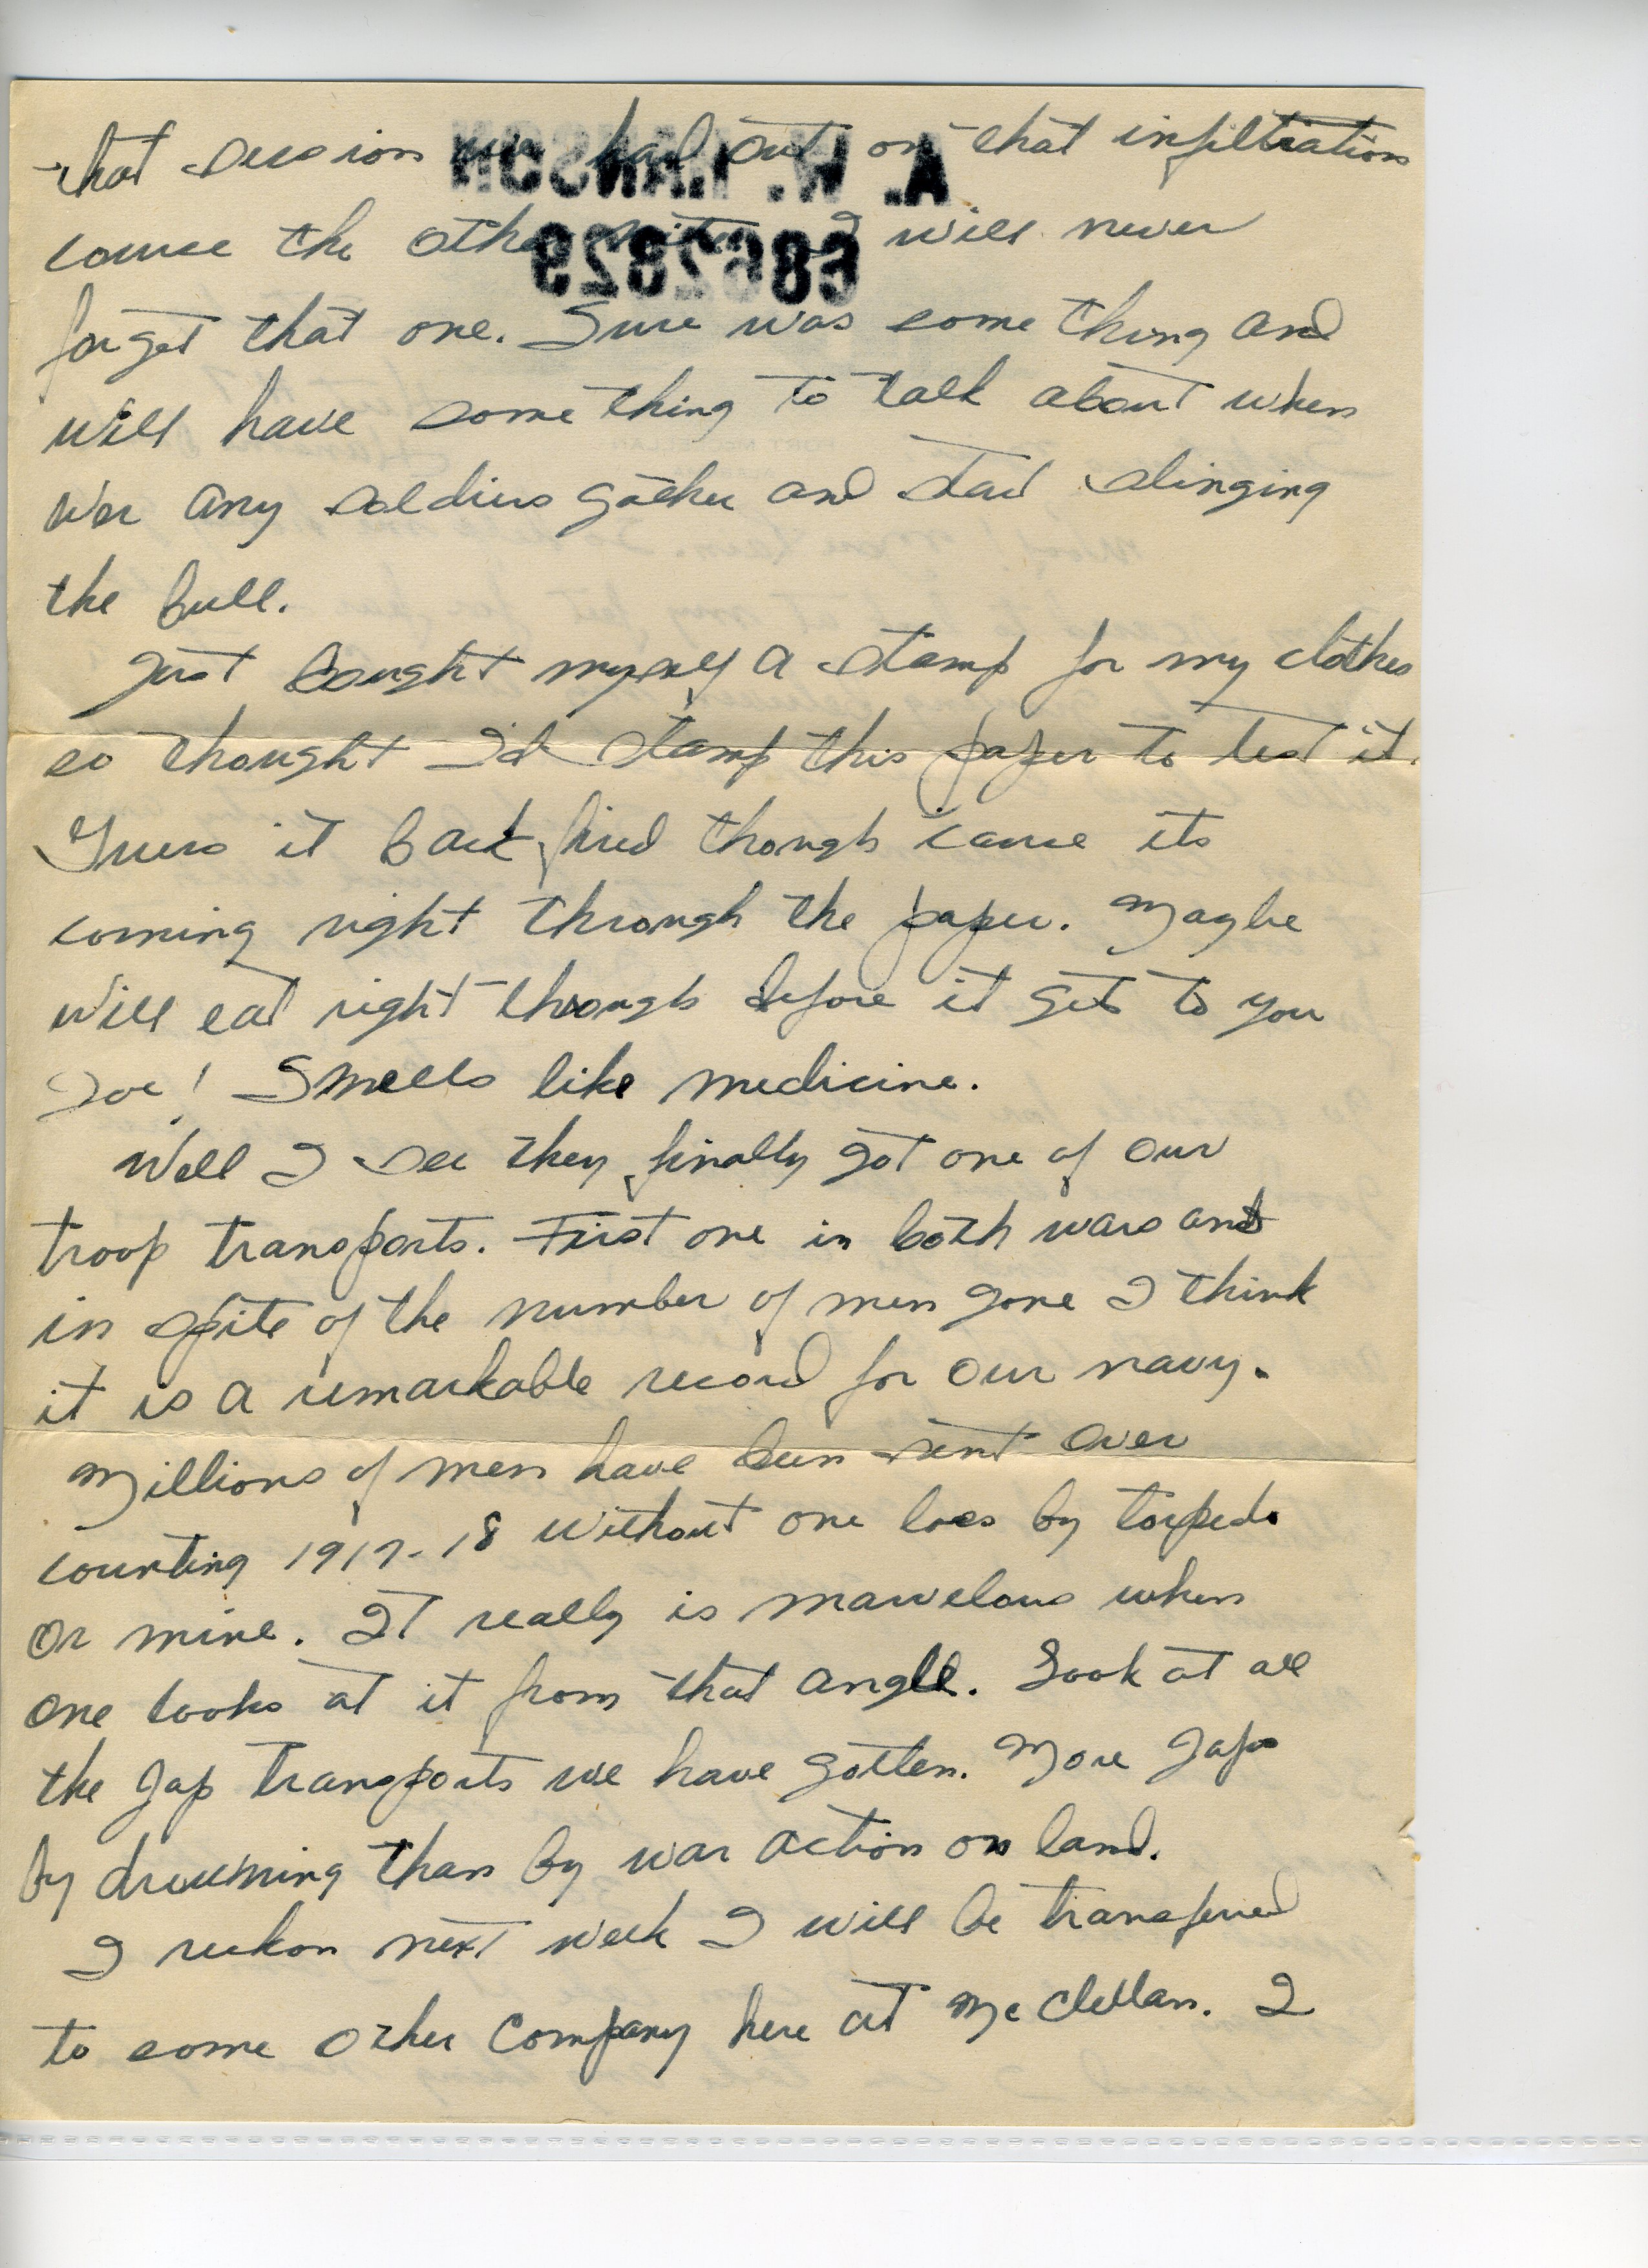 that session we had out on that infiltration
A. W. HANSON
course the other nite. I will never
6862829
forget that one. Sure was some thing and
will have some thing to talk about when
ever any soldiers gather and start slinging
the bull.
Just bought myself a stamp for my clothes
so thought I'd stamp this paper to test it.
Guess it back fired though cause its
coming right through the paper. Maybe
will eat right through before it gets to you
Joe! Smells like medicine.
Well I see they finally got one of our
troop transports. First one in both wars and
in spite of the number of men gone I think
it is a remarkable record for our navy.
Millions of men have been sent over
counting 1917-18 without one loss by torpedo
or mine. It really is marvelous when
one looks at it from that angle. Look at all
the Jap transports we have gotten. More Japs
by drowning than by war action on land.
I reckon next week I will be transfered
to some other company here at Mc Clellan. I